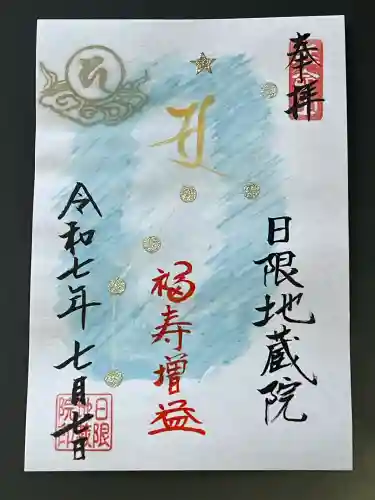 奉拝
日限地蔵院
福寿増益
令和七年七月七日
日限
地蔵
院印